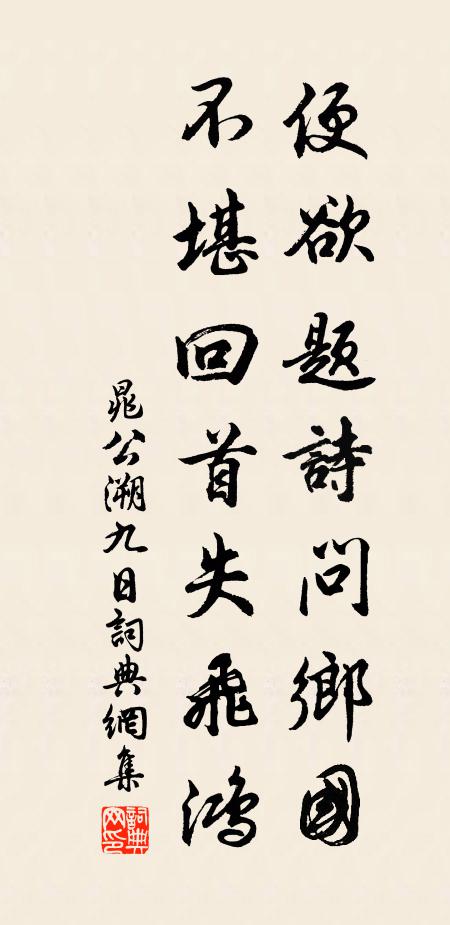 便欲题詩問鄉國
不堪回首失飛鴻
晁公溯九日詞典網集
詞典網印